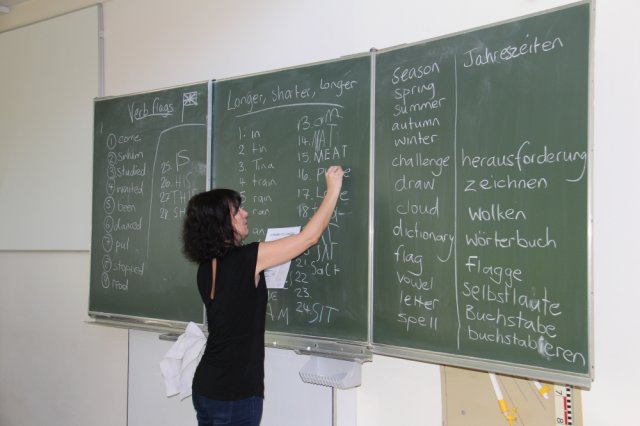 Verb flags
1 come
3 studied
4 wanted
5 been
6 danced
7 put
8 stopped
9 read
25.
26. HIS
27. THIS
28.
Longer, shorter, longer
1. in
2. tin
3. Tina
4. train
rain
ran
an
AM
13. am
14.
15. MEAT
16.
17.
18.
SAT
21. Salt
22.
23.
24. SIT
season Jahreszeiten
spring
summer
autumn
winter
challenge herausforderung
draw zeichnen
cloud wolken
dictionary wörterbuch
flag flagge
vowel selbstlaute
letter Buchstabe
spell buchstabieren
7
8